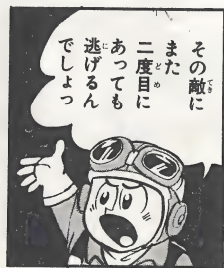 その敵に
また
二度目に
あっても
逃げるん
でしょっ